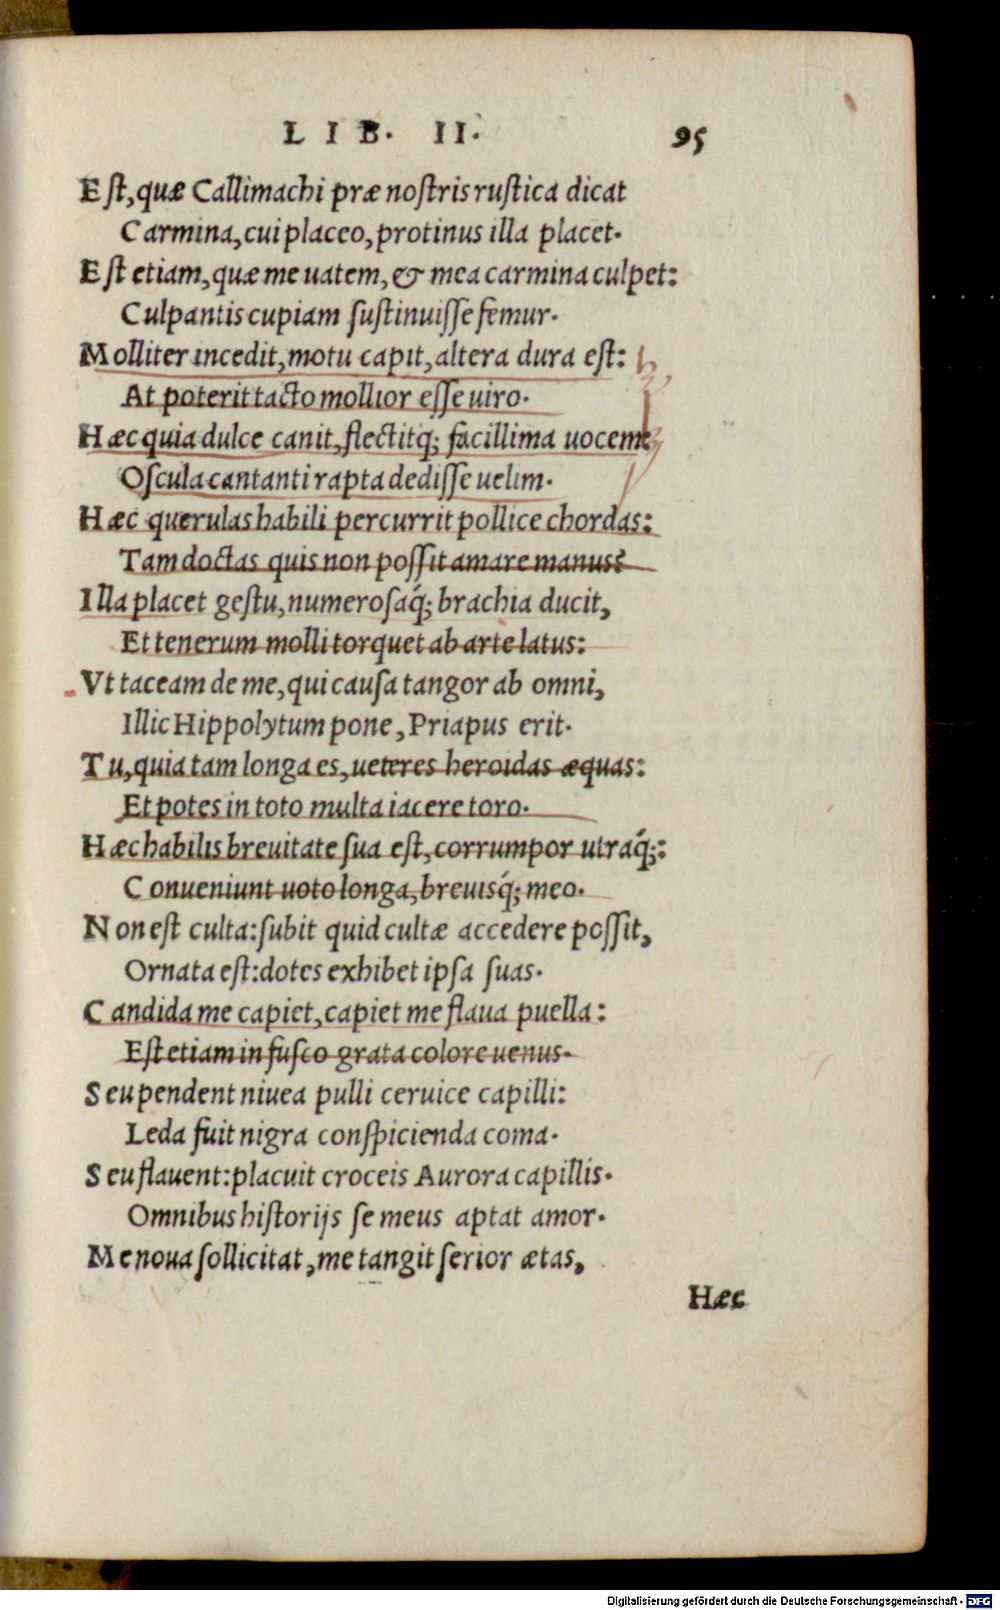 LIB. II. 95
Est, quæ Callimachi præ nostris rustica dicat
Carmina, cui placeo, protinus illa placet.
Est etiam, quæ me uatem, & mea carmina culpet:
Culpantis cupiam sustinuisse femur.
Molliter incedit, motu capit, altera dura est:
At poterit tacto mollior esse uiro.
Hæc quia dulce canit, flectitq́; facillima uocem:
Oscula cantanti rapta dedisse uelim.
Hæc querulas habili percurrit pollice chordas:
Tam doctas quis non possit amare manus?
Illa placet gestu, numerosaq́; brachia ducit,
Et tenerum molli torquet ab arte latus:
Vt taceam de me, qui causa tangor ab omni,
Illic Hippolytum pone, Priapus erit.
Tu, quia tam longa es, ueteres heroidas æquas:
Et potes in toto multa iacere toro.
Hæc habilis breuitate sua est, corrumpor utraq́;:
Conueniunt uoto longa, breuisq́; meo.
Non est culta: subit quid cultæ accedere possit,
Ornata est: dotes exhibet ipsa suas.
Candida me capiet, capiet me flaua puella:
Est etiam in fusco grata colore uenus.
Seu pendent niuea pulli ceruice capilli:
Leda fuit nigra conspicienda coma.
Seu flauent: placuit croceis Aurora capillis.
Omnibus historijs se meus aptat amor.
Me noua sollicitat, me tangit serior ætas,
Hæc
Digitalisierung gefördert durch die Deutsche Forschungsgemeinschaft - DFG